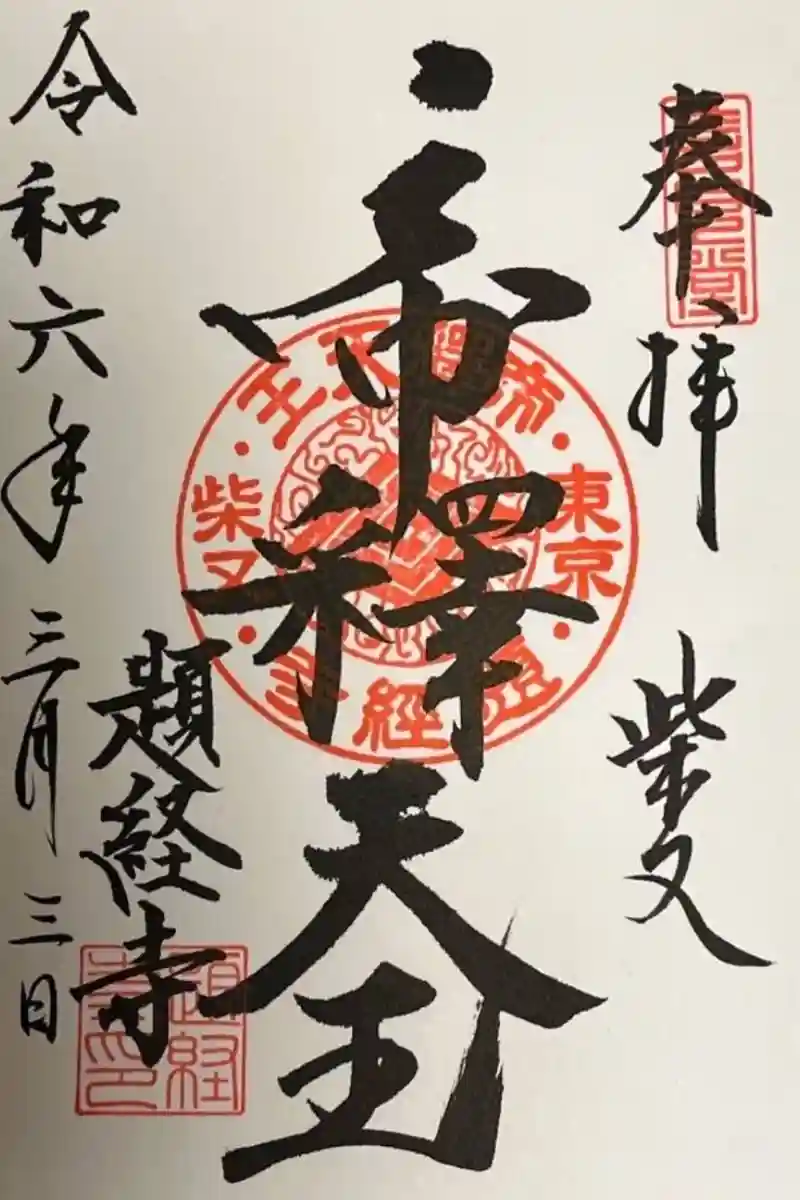 奉拝
柴又
帝釋天王
題経寺
令和六年三月三日
帝釋天王
東京
柴又
題經寺
題経寺印